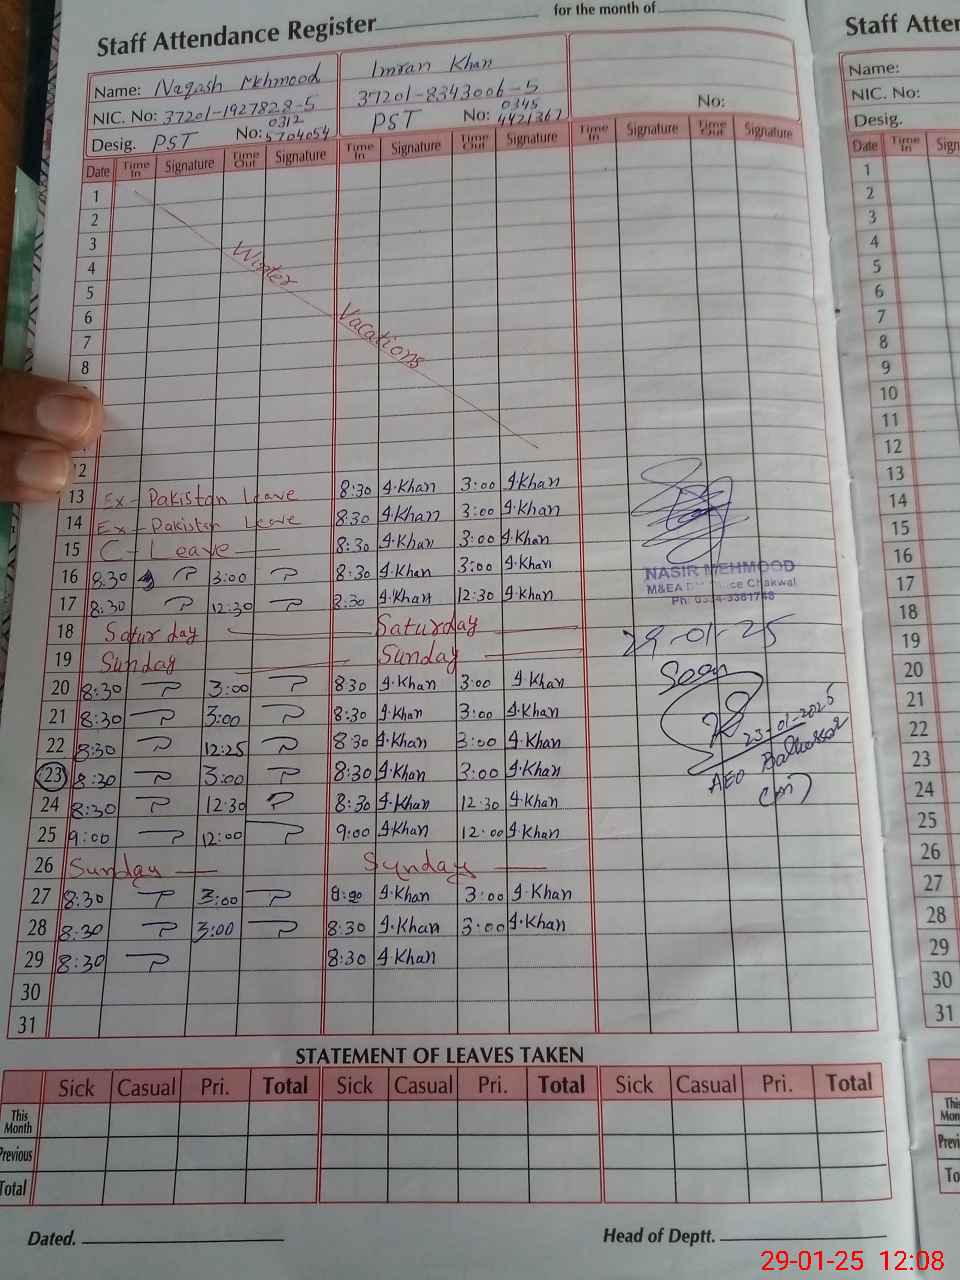 Staff Attendance Register
for the month of
Name: Naqash Mehmood
NIC. No: 37201-1927828-5
Desig. PST No: 0312 5704054
Imran Khan
37201-8343006-5
PST No: 0345 4421367
No:
Date Time In Signature Time Out Signature Time In Signature Time Out Signature Time In Signature Time Out Signature
1
2
3
4
5
6
7
8
Winter Vacations
12
13 Ex-Pakistan Leave 8:30 I.Khan 3:00 I.Khan
14 Ex-Pakistan Leave 8:30 I.Khan 3:00 I.Khan
15 C-Leave 8:30 I.Khan 3:00 I.Khan
16 8:30 3:00 8:30 I.Khan 3:00 I.Khan
17 8:30 12:30 8:30 I.Khan 12:30 I.Khan
18 Saturday Saturday
19 Sunday Sunday
20 8:30 3:00 8:30 I.Khan 3:00 I.Khan
21 8:30 3:00 8:30 I.Khan 3:00 I.Khan
22 8:30 12:25 8:30 I.Khan 3:00 I.Khan
23 8:30 3:00 8:30 I.Khan 3:00 I.Khan
24 8:30 12:30 8:30 I.Khan 12:30 I.Khan
25 9:00 12:00 9:00 I.Khan 12:00 I.Khan
26 Sunday Sunday
27 8:30 3:00 8:30 I.Khan 3:00 I.Khan
28 8:30 3:00 8:30 I.Khan 3:00 I.Khan
29 8:30 8:30 I.Khan
30
31
NASIR MEHMOOD
M&EA Office Chakwal
29-01-25
Seen
23-01-2025
AEO
(m)
STATEMENT OF LEAVES TAKEN
Sick Casual Pri. Total Sick Casual Pri. Total Sick Casual Pri. Total
This Month
Previous
Total
Dated.
Head of Deptt.
Staff Atten
Name:
NIC. No:
Desig.
Date Time In Sign
1
2
3
4
5
6
7
8
9
10
11
12
13
14
15
16
17
18
19
20
21
22
23
24
25
26
27
28
29
30
31
This Mon
Previ
To
29-01-25 12:08